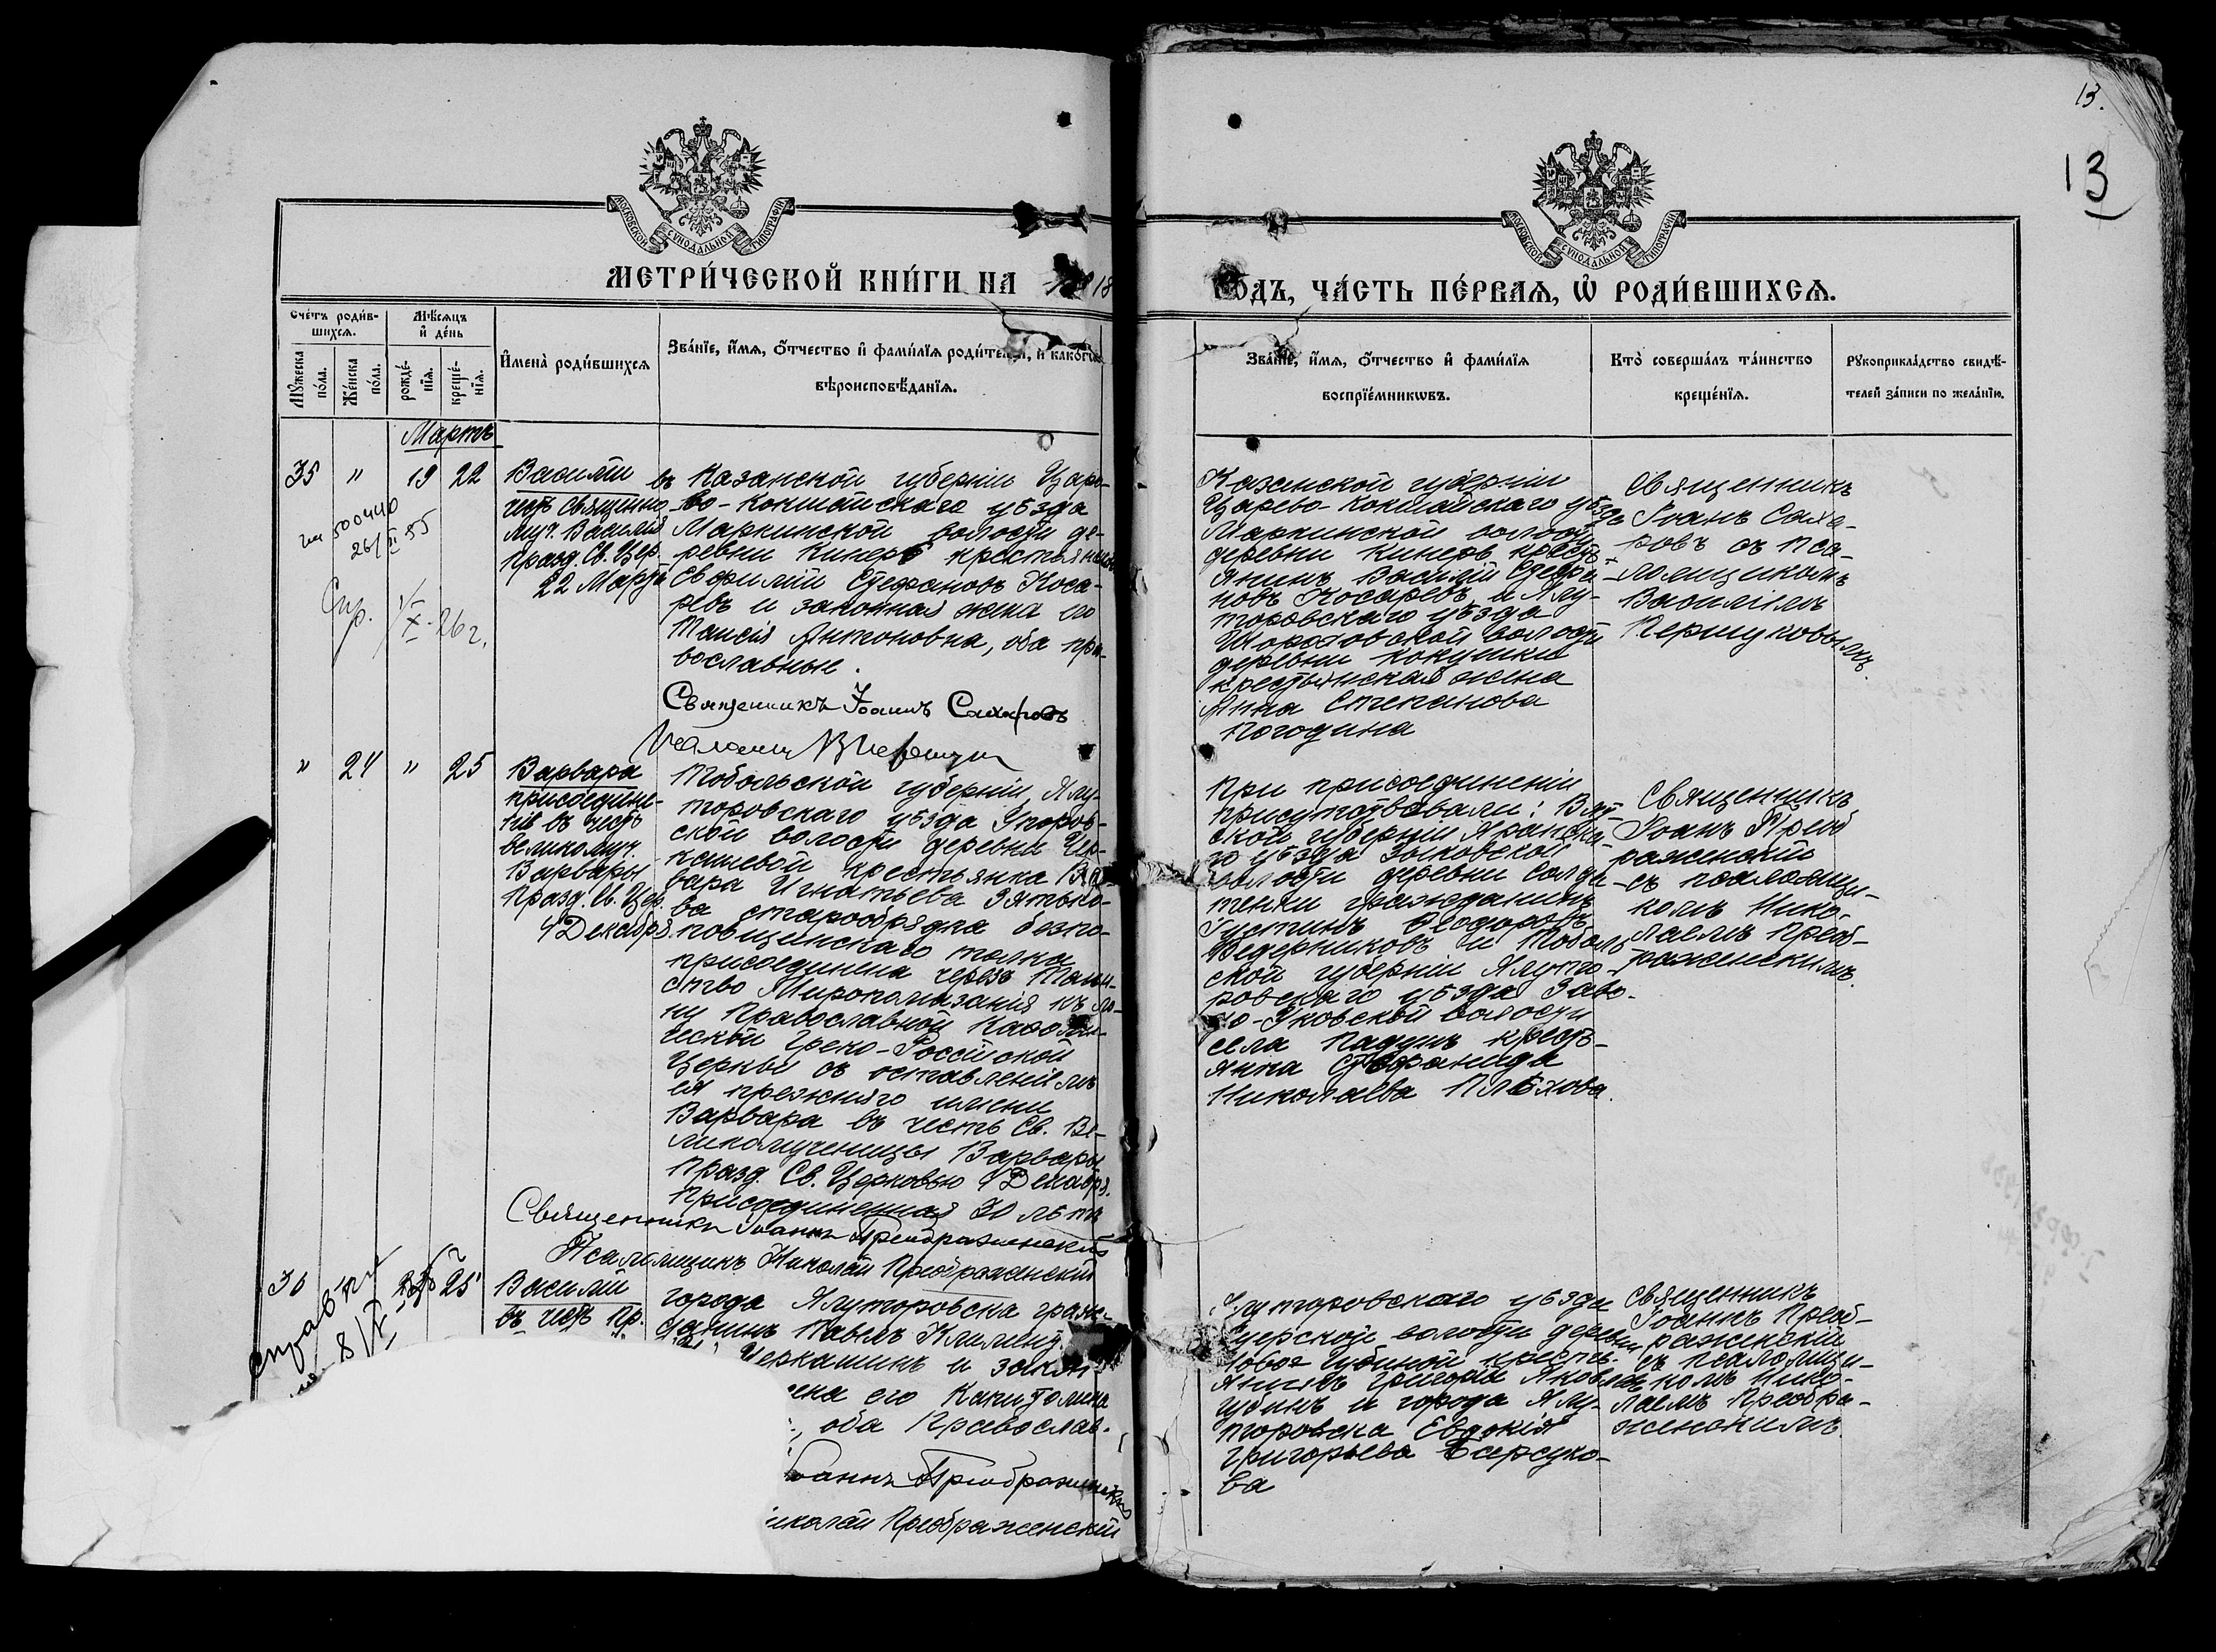 13.
13
МОСКОВСКОЙ СѴНОДАЛЬНОЙ ТИПОГРАФІИ
МОСКОВСКОЙ СѴНОДАЛЬНОЙ ТИПОГРАФІИ
МЕТРИ́ЧЕСКОЙ КНИ́ГИ НА 18
ГОДЪ, ЧА́СТЬ ПЕ́РВАЯ, Ѡ҆ РОДИ́ВШИХСЯ.
Сче́тъ роди́в-
шихся.
Мꙋ́жеска
по́ла.
Же́нска
по́ла.
Мѣ́сяцъ
и҆ де́нь
рожде́-
нїя.
креще́-
нїя.
И҆мена̀ роди́вшихся
Зва́нїе, и҆́мя, ѻ҆́тчество и҆ фами́лїя роди́телей, и҆ како́гѡ
вѣроисповѣ́данїя.
Зва́нїе, и҆́мя, ѻ҆́тчество и҆ фами́лїя
воспрїе́мникѡвъ.
Кто̀ соверша́лъ та́инство
креще́нїя.
Рꙋкоприкла́дство свидѣ́-
телей за́писи по жела́нїю.
Мартъ
35 " 19 22
500440
26/II 35
Спр. 1/X-26 г.
Василій въ
честь священно
муч. Василія
празд. Св. Цер.
22 Марта
Казанской губерніи Царе-
во-Кокшайскаго уѣзда
Маркинской волости де-
ревни Кинеръ крестьянинъ
Ефимій Стефановъ Коса-
ревъ и законная жена его
Таисія Антоновна, оба пра-
вославные.
Священникъ Іоаннъ Сахаровъ
Казанской губерніи
Царево-Кокшайскаго уѣзда
Маркинской волости
деревни Кинеръ кресть-
янинъ Василій Стефа-
новъ Косаревъ и Ялу-
торовскаго уѣзда
Шороховской волости
деревни Кокушки
крестьянская жена
Анна Степанова
Погодина
Священникъ
Іоаннъ Саха-
ровъ съ пса-
ломщикомъ
Василіемъ
Першуковымъ.
" 24 " 25
Варвара
присоедине-
на въ честь
великомуч.
Варвары
празд. Св. Цер.
4 Декабря.
Тобольской губерніи, Ялу-
торовскаго уѣзда Упоров-
ской волости деревни Чер-
каневой крестьянка Вар-
вара Игнатьева Зятько-
ва старообрядка безпо-
повщинскаго толка
присоединена черезъ Таин-
ство Миропомазанія къ ло-
ну Православной Каѳоли-
ческой Греко-Россійской
Церкви съ оставленіемъ
ея прежняго имени
Варвара въ честь Св. Ве-
ликомученицы Варвары
празд. Св. Церковью 4 Декабря.
Присоединенная 30 лѣтъ
Священникъ Іоаннъ Преображенскій
Псаломщикъ Николай Преображенскій
При присоединеніи
присутствовали: Вят-
ской губерніи Яранска-
го уѣзда Зыковской
волости деревни Солда-
тенки гражданинъ
Іустинъ Ѳеодоровъ
Ведерниковъ и Тоболь-
ской губерніи Ялуто-
ровскаго уѣзда Заво-
до-Уковской волости
села Падунъ кресть-
янка Стефанида
Николаева Плѣхова.
Священникъ
Іоаннъ Преоб
раженскій
съ псаломщи-
комъ Нико-
лаемъ Преоб-
раженскимъ.
36 25
справку
8/X
Василій
въ честь Пр.
города Ялуторовска граж-
данинъ Павелъ
Черкашинъ и закон
жена его Капитолина
оба Православ.
Іоаннъ Преображенскій
Николай Преображенскій
Ялуторовскаго уѣзда
волости деревни
Губиной кресть-
янинъ Григорій Яковлевъ
Губинъ и города Ялу-
торовска Евдокія
Григорьева Барсуко-
ва
Священникъ
Іоаннъ Преоб-
раженскій
съ псаломщи-
комъ Нико-
лаемъ Преобра-
женскимъ.